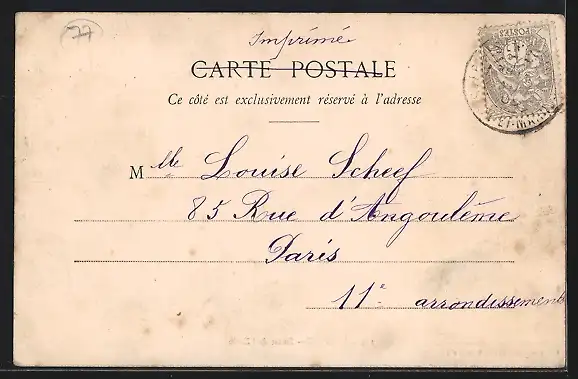 77
Imprimé
CARTE POSTALE
Ce côté est exclusivement réservé à l'adresse
Mlle Louise Scheef
85 Rue d'Angoulême
Paris
11e arrondissement
POSTES